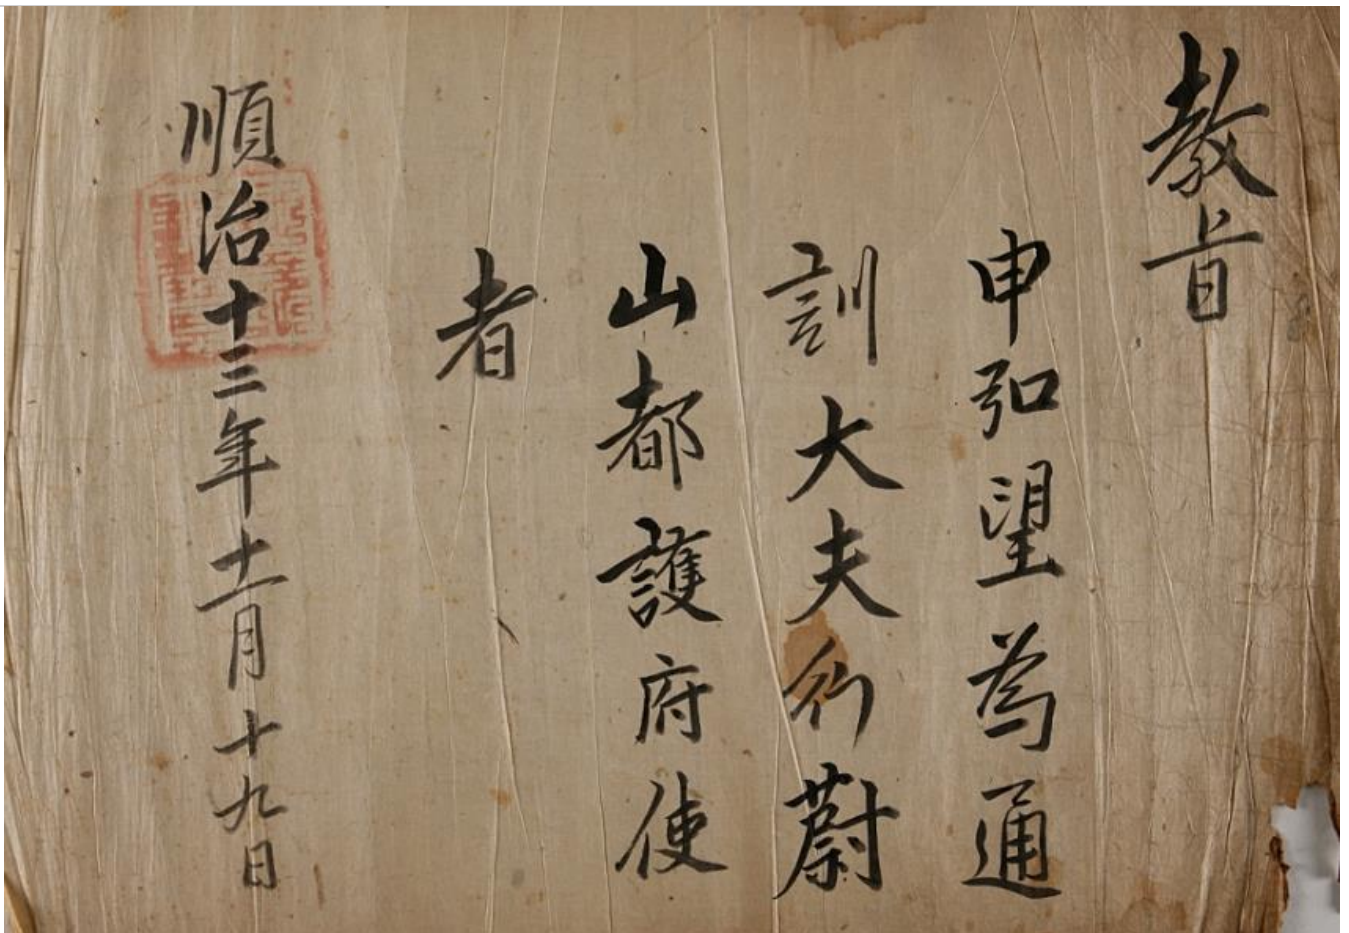 教旨
申弘望為通
訓大夫行蔚
山都護府使
者
順治十三年十一月十九日